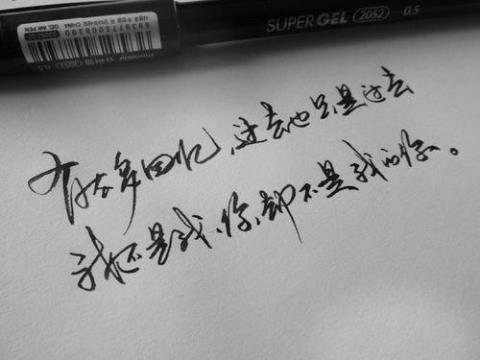 SUPER GEL 2052 0.5
GEL INK PEN
回忆,过去也只是过去
我还是我,你却不是我的你。